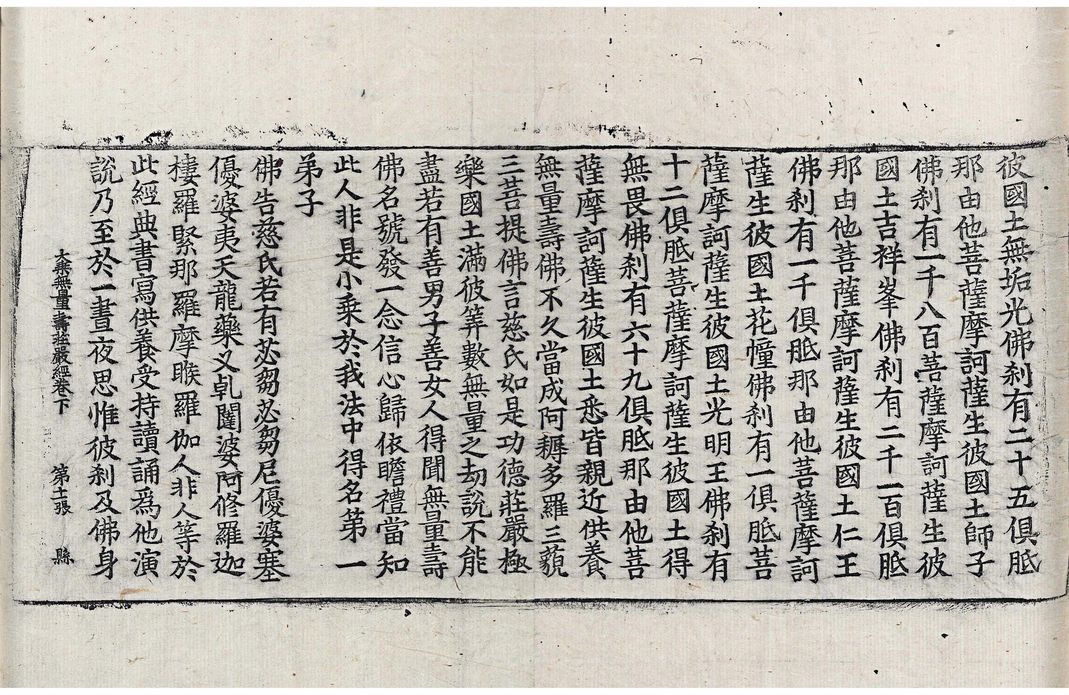 彼國土無垢光佛刹有二十五俱胝
那由他菩薩摩訶薩生彼國土師子
佛刹有一千八百菩薩摩訶薩生彼
國土吉祥峯佛刹有二千一百俱胝
那由他菩薩摩訶薩生彼國土仁王
佛刹有一千俱胝那由他菩薩摩訶
薩生彼國土花幢佛刹有一俱胝菩
薩摩訶薩生彼國土光明王佛刹有
十二俱胝菩薩摩訶薩生彼國土得
無畏佛刹有六十九俱胝那由他菩
薩摩訶薩生彼國土悉皆親近供養
無量壽佛不久當成阿耨多羅三藐
三菩提佛言慈氏如是功德莊嚴極
樂國土滿彼筭數無量之劫說不能
盡若有善男子善女人得聞無量壽
佛名號發一念信心歸依瞻禮當知
此人非是小乘於我法中得名第一
弟子
佛告慈氏若有苾芻苾芻尼優婆塞
優婆夷天龍藥叉乹闥婆阿修羅迦
樓羅緊那羅摩睺羅伽人非人等於
此經典書寫供養受持讀誦爲他演
說乃至於一晝夜思惟彼刹及佛身
大乘無量壽莊嚴經卷下 第十張 縣